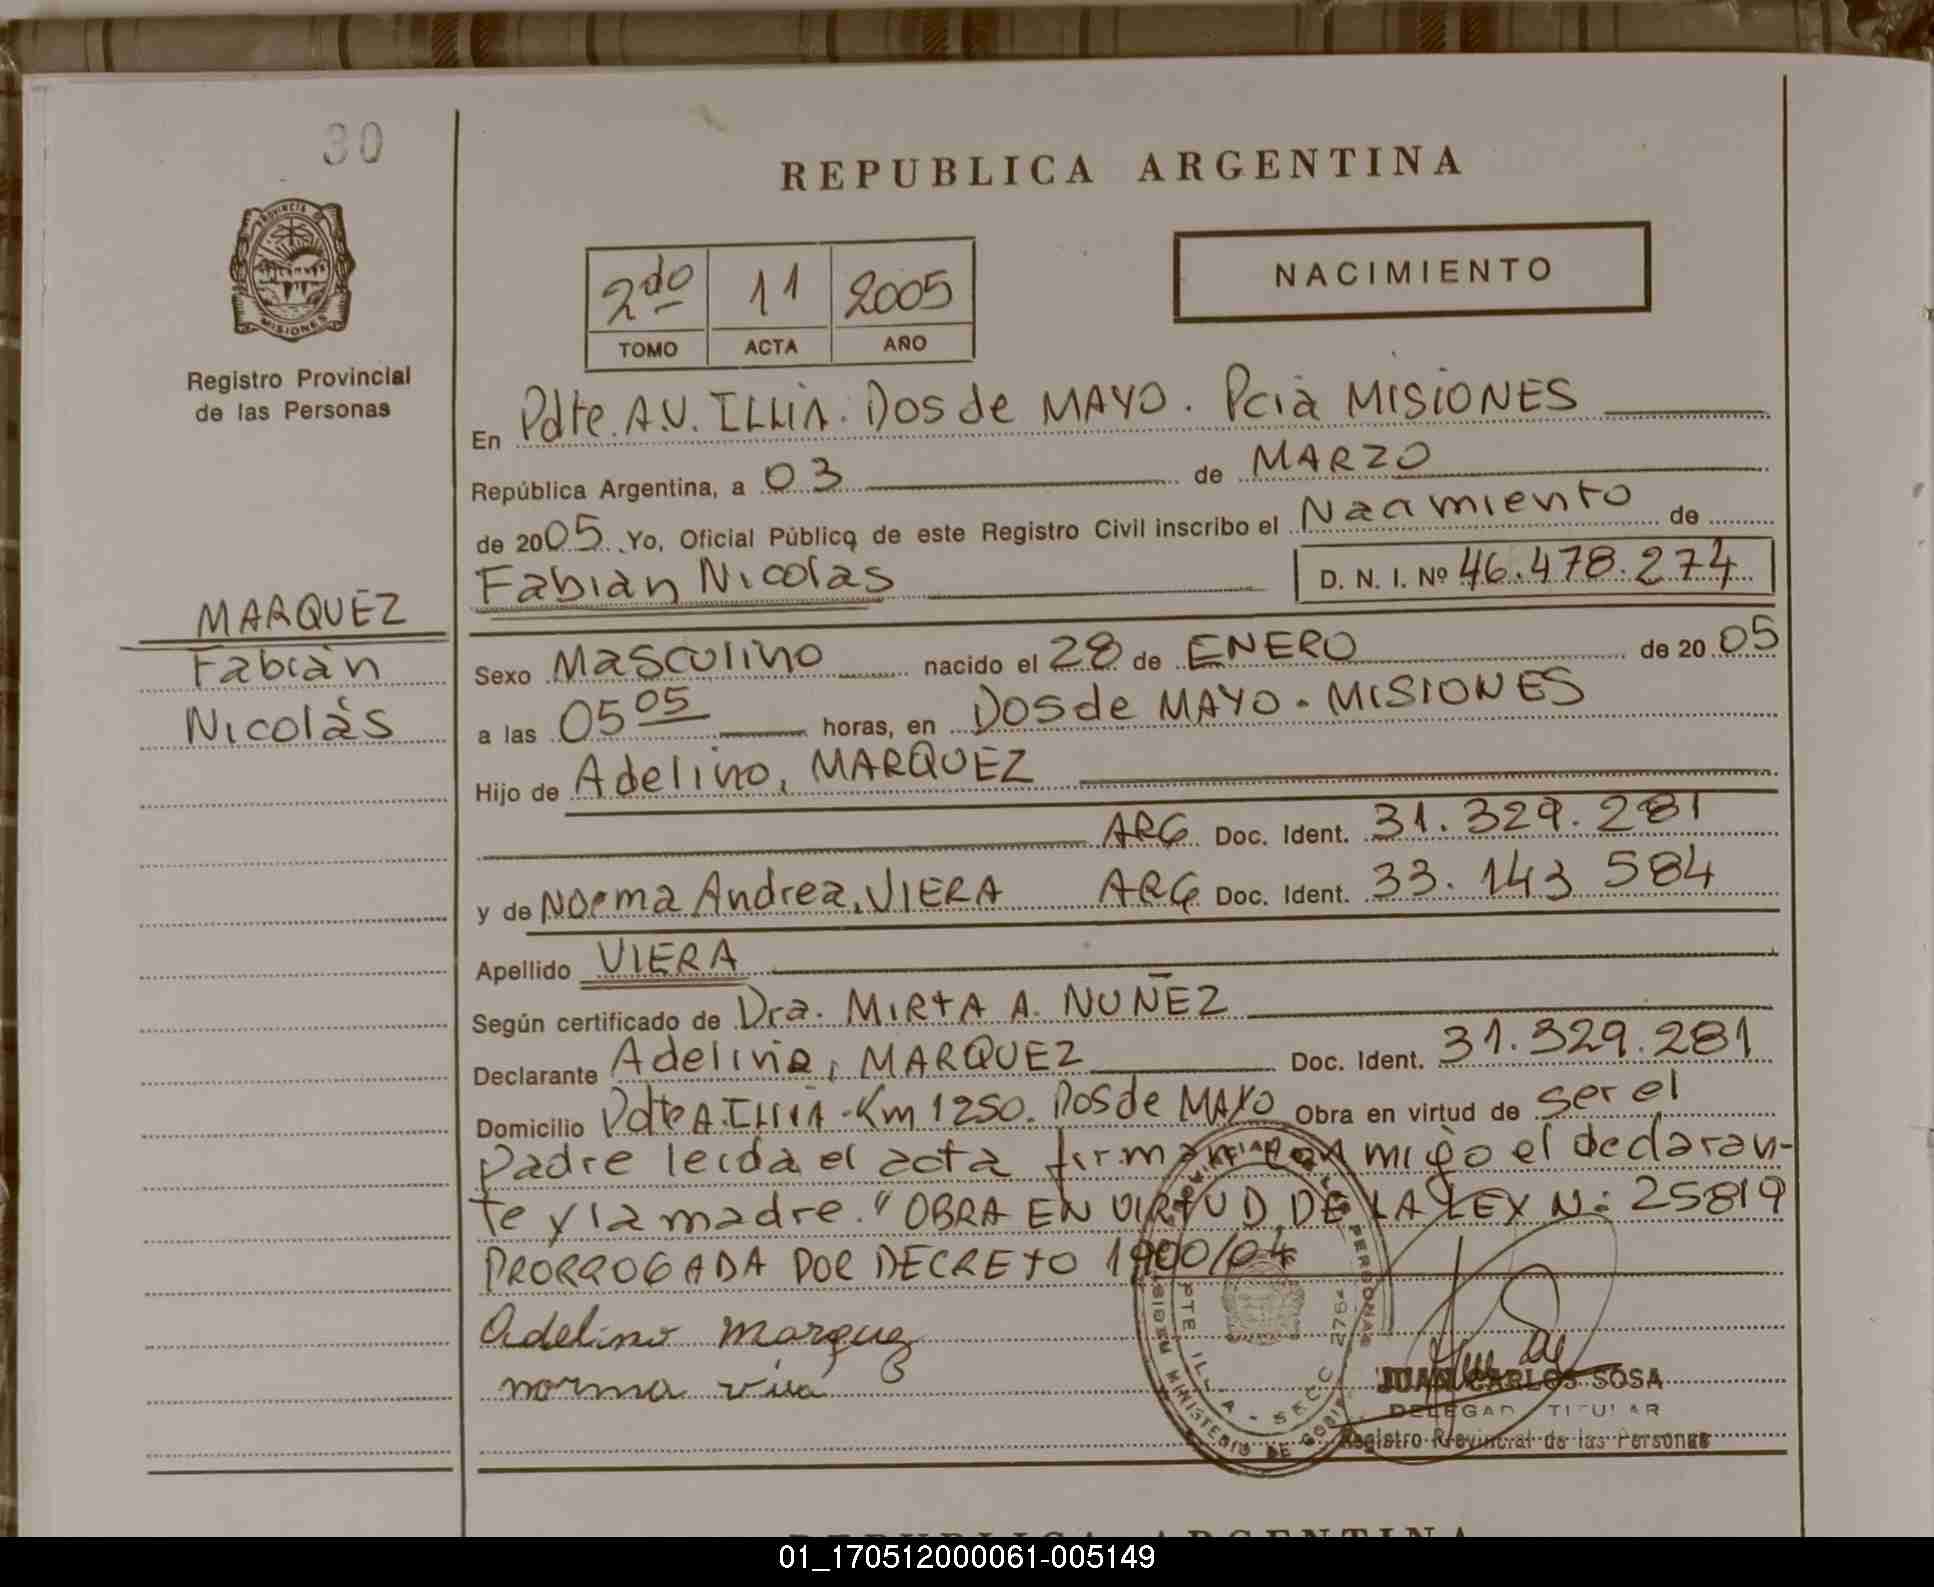 30
REPUBLICA ARGENTINA
PROVINCIA DE
MISIONES
2do 11 2005
TOMO ACTA AÑO
NACIMIENTO
Registro Provincial
de las Personas
En Pdte. A.U. ILLIA. Dos de MAYO. Pcia MISIONES
República Argentina, a 03 de MARZO
de 2005 Yo, Oficial Público de este Registro Civil inscribo el Nacimiento de
Fabián Nicolas D. N. I. Nº 46.478.274
MARQUEZ
Fabián
Nicolás
Sexo Masculino nacido el 28 de ENERO de 2005
a las 05 05 horas, en Dos de MAYO - MISIONES
Hijo de Adelino, MARQUEZ
ARG Doc. Ident. 31.329.281
y de Norma Andrea, VIERA ARG Doc. Ident. 33.143 584
Apellido VIERA
Según certificado de Dra. MIRTA A. NUÑEZ
Declarante Adelino, MARQUEZ Doc. Ident. 31.329.281
Domicilio Pdte A. ILLIA - Km 1250. Dos de MAYO Obra en virtud de ser el
padre leída el acta firman conmigo el declaran-
te y la madre. "OBRA EN VIRTUD DE LA LEY N: 25819
PRORROGADA POR DECRETO 1900/04
Adelino Marquez
norma
JUAN CARLOS SOSA
DELEGADO TITULAR
Registro Provincial de las Personas
REPUBLICA ARGENTINA
01_170512000061-005149